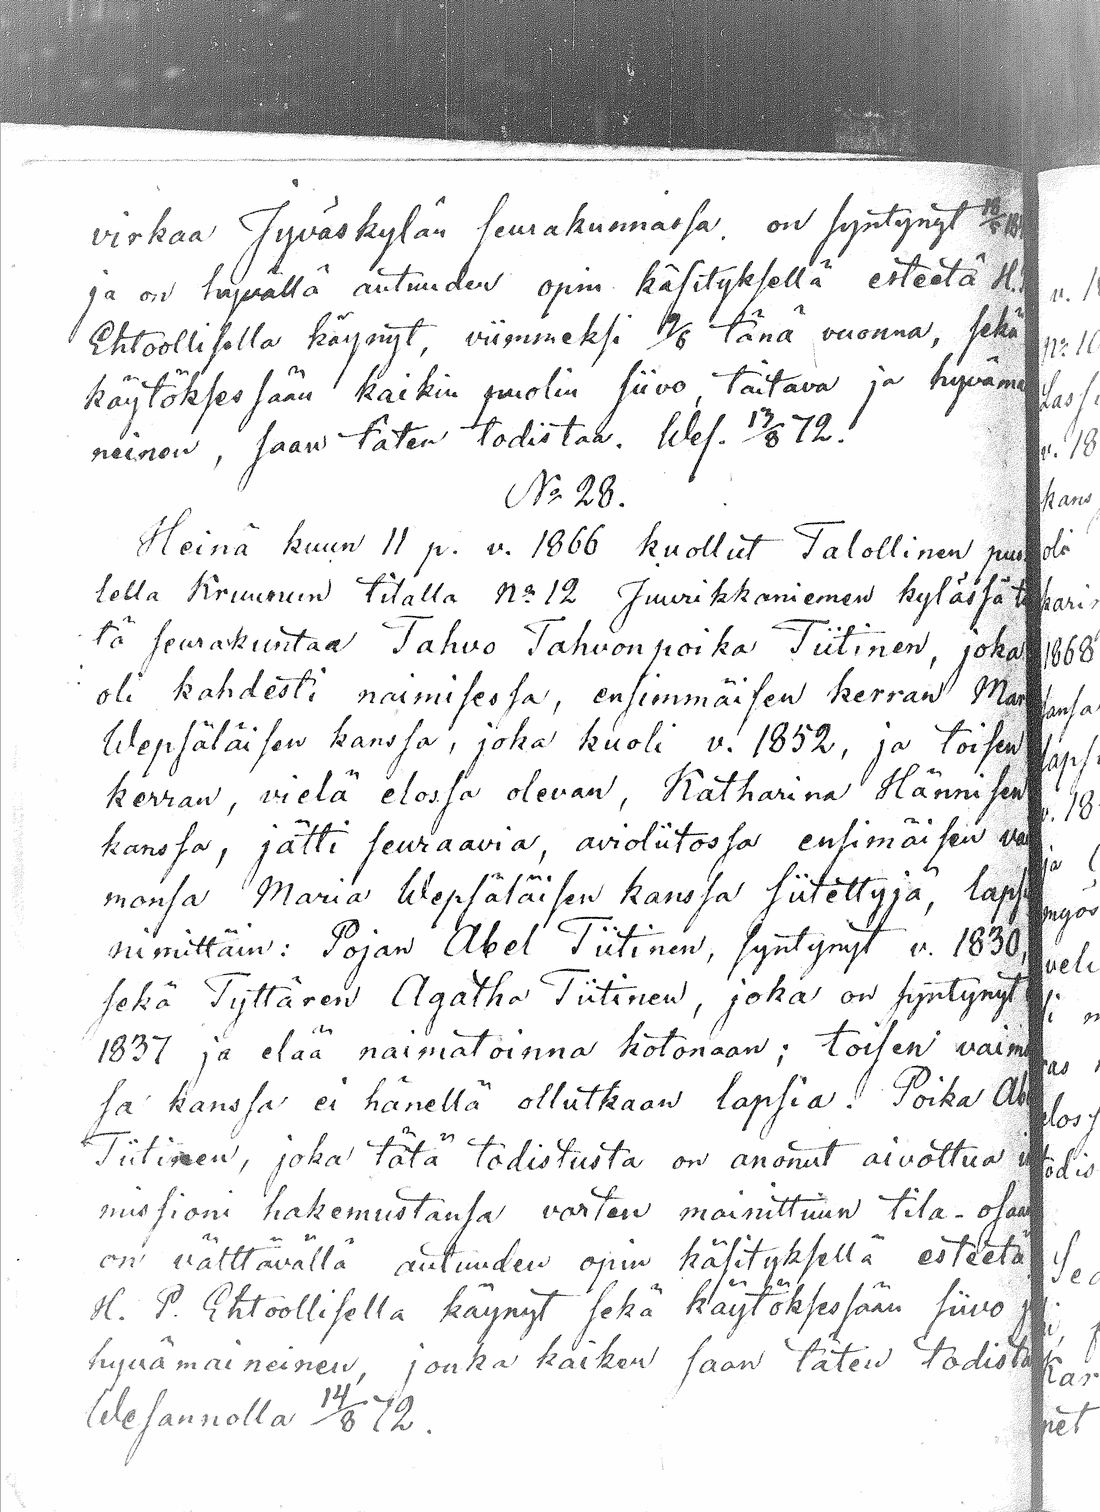 virkaa Jyväskylän seurakunnassa. on syntynyt 18/
ja on hyvällä autuuden opin käsityksellä esteetä H.
Ehtoollisella käynyt, viimmeksi 9/6 tänä vuonna, sekä
käytöksessään kaikin puolin siivo, taitava ja hyväma
neinen, saan täten todistaa. Wes. 13/8 72.
No 28.
Heinä kuun 11 p. v. 1866 kuollut Talollinen puo
lella Kruunun tilalla No 12 Juurikkaniemen kylässä tä
tä seurakuntaa Tahvo Tahvonpoika Tiitinen, joka
oli kahdesti naimisessa, ensimmäisen kerran Mar
Wepsäläisen kanssa, joka kuoli v. 1852, ja toisen
kerran, vielä elossa olevan, Katharina Hännisen
kanssa, jätti seuraavia, avioliitossa ensimäisen va
monsa Maria Wepsäläisen kanssa siitettyjä, laps
nimittäin: Pojan Abel Tiitinen, syntynyt v. 1830,
sekä Tyttären Agatha Tiitinen, joka on syntynyt
1837 ja elää naimatoinna kotonaan; toisen vaimo
sa kanssa ei hänellä ollutkaan lapsia. Poika Ab
Tiitinen, joka tätä todistusta on anonut aivottua i
missioni hakemustansa varten mainittuun tila-osaa
on välttävällä autuuden opin käsityksellä esteetä
H. P. Ehtoollisella käynyt sekä käytöksessään siivo j
hyvämaineinen, jonka kaiken saan täten todista
Wesannolla 14/8 72.
v. 18
No 10
Lassi
v. 18
kans
oli
karin
1868
sansa
lapsi
v. 18
ja
myös
veli
elos
todis
Kar
net